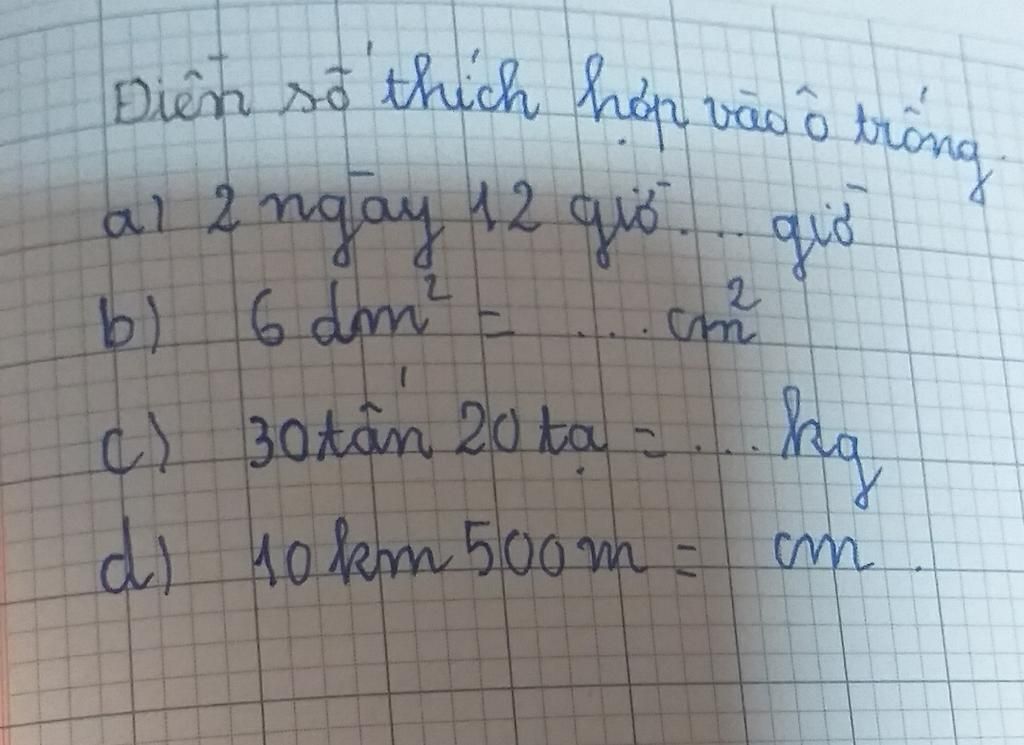 Điền số thích hợp vào ô trống.
a) 2 ngày 12 giờ .... giờ
b) 6 dm² = .... cm²
c) 30 tấn 20 tạ = ... kg
d) 10 km 500 m = cm .